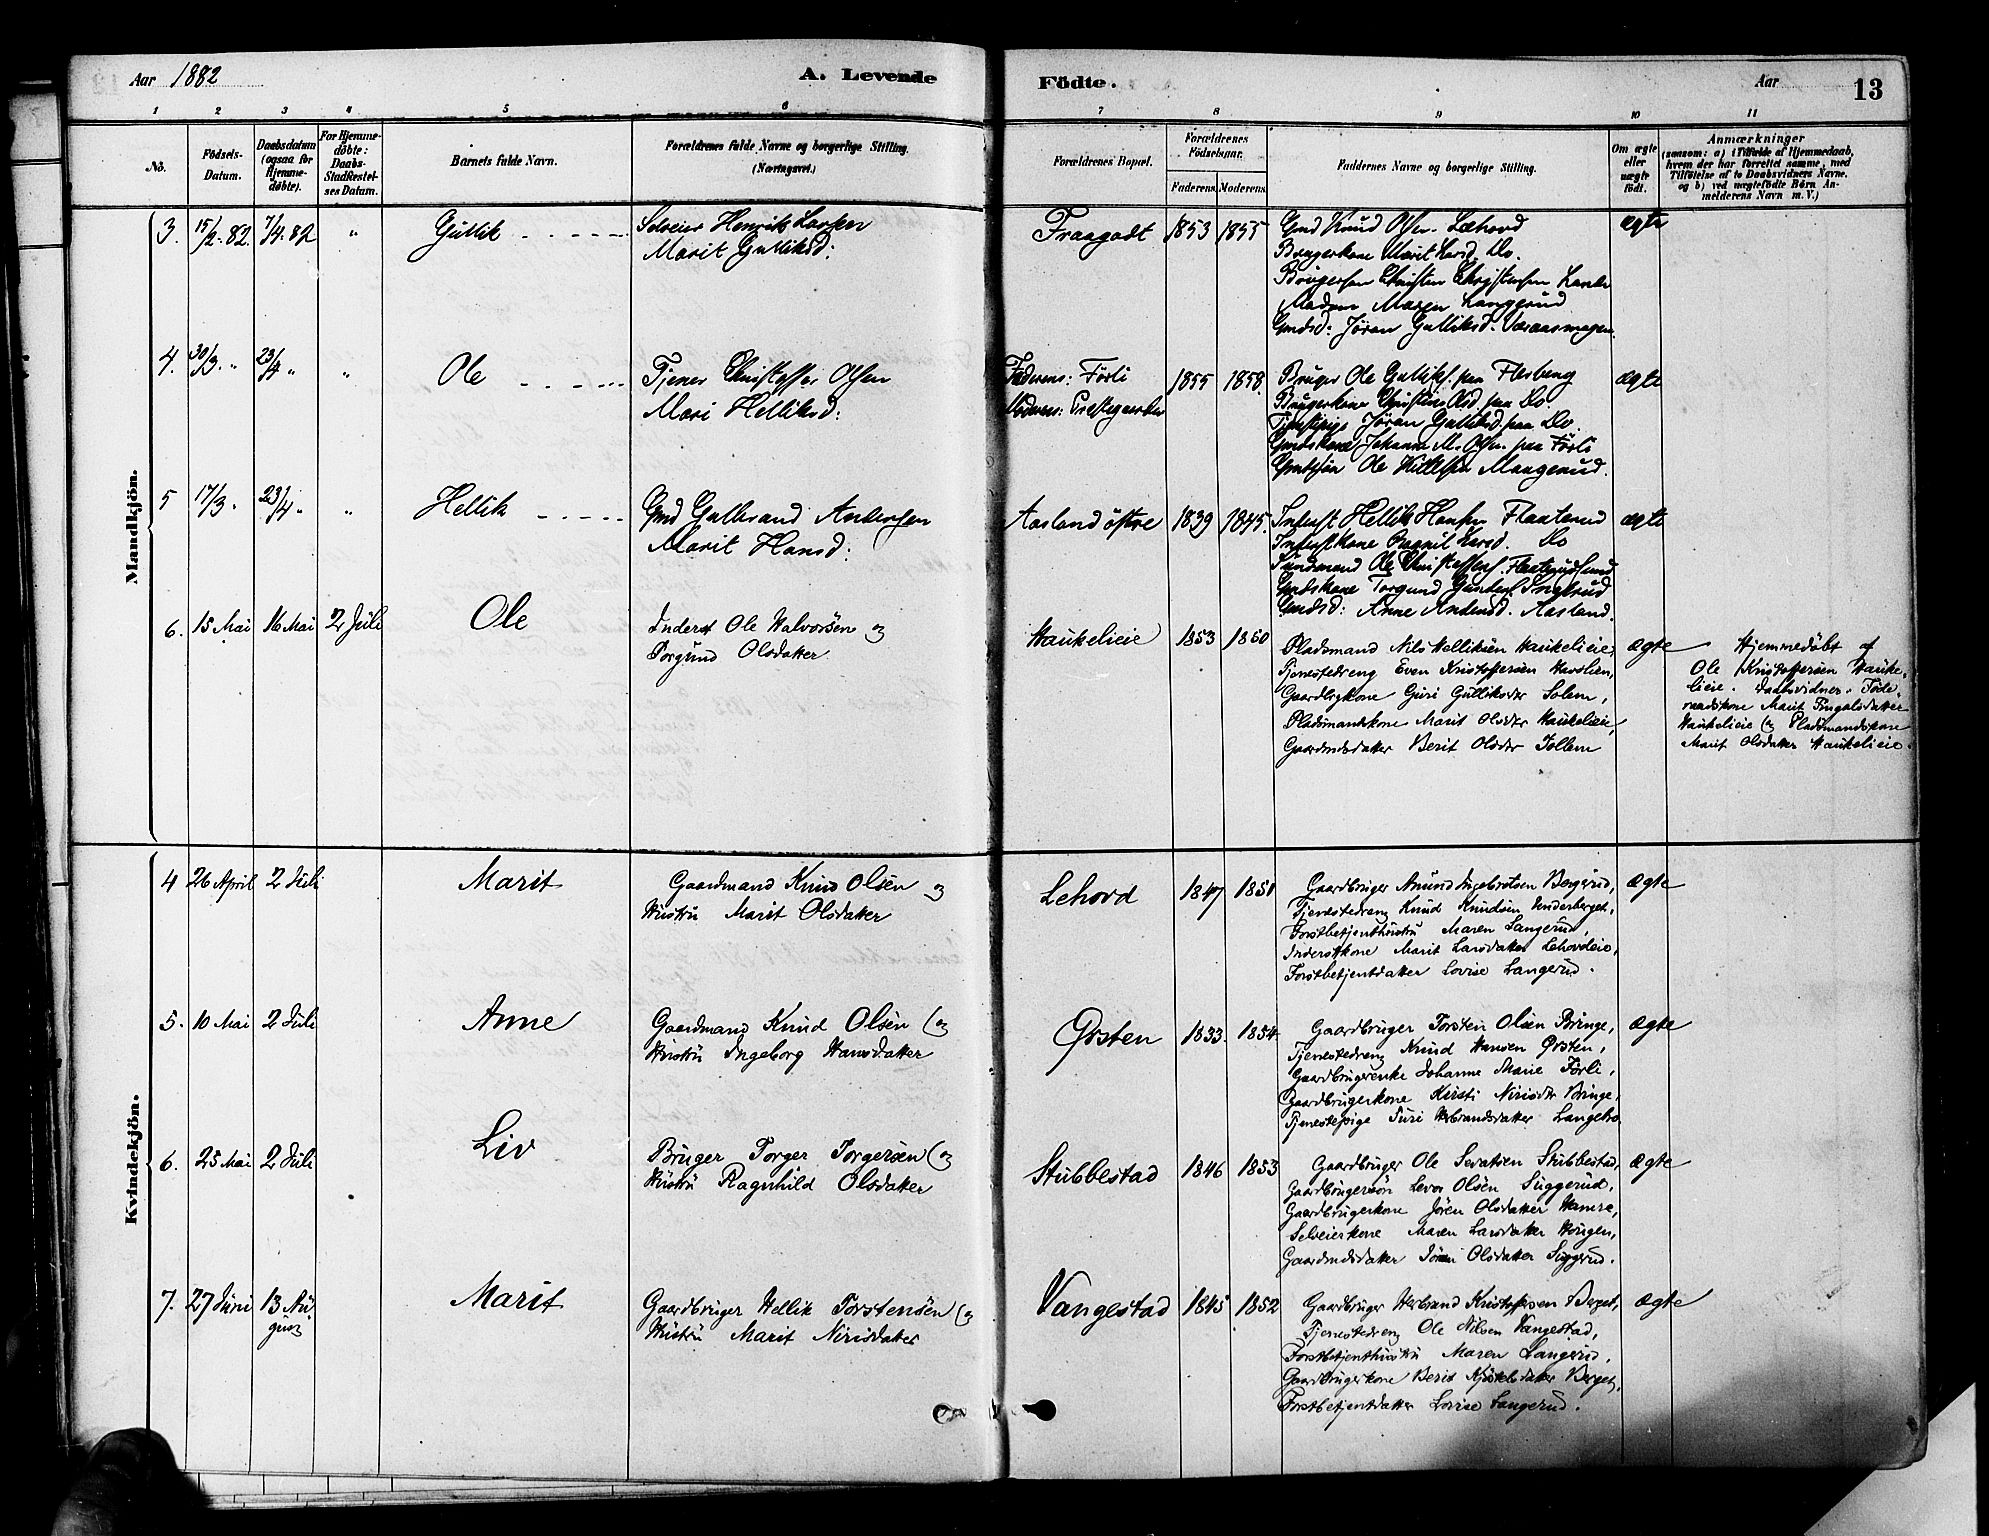 Aar 1882
A. Levende
Födte.
Aar
13
1 2 3 4 5 6 7 8 9 10 11
No.
Födsels-Datum.
Daabsdatum (ogsaa for Hjemme-döbte).
For Hjemme-döbte: Daabs-Stadfæstel-ses Datum.
Barnets fulde Navn.
Forældrenes fulde Navne og borgerlige Stilling.
(Næringsvei.)
Forældrenes Bopæl.
Forældrenes Födselsaar.
Faderens. Moderens.
Faddernes Navne og borgerlige Stilling.
Om ægte eller uægte födt.
Anmærkninger
(saasom: a) i Tilfælde af Hjemmedaab,
hvem der har forrettet samme, med
Tilföielse af to Daabsvidners Navne.
og b) ved uægtefödte Börn An-
melderens Navn m. V.)
Mandkjön.
3. 15/2. 82. 7/4. 82 " Gullik
Selveier Henrik Larsen
Marit Gulliksd:
Fraagodt 1853 1855
Gmd Knud Olsen Læhovd
Brugerkone Marit Larsd. Do.
Brugersøn Christen Christensen
Madam Maren Langgerud
Gmdsd: Jøran Gulliksd.
ægte
4. 30/3. " 23/4 " " Ole
Tjener Christoffer Olsen
Mari Helliksd:
Faderens: Førli
Moderens: Præstegaarden
1855 1858.
Bruger Ole Gulliks. paa Flesberg
Brugerkone Christens Olsd paa Do.
Tjenstpige Jøran Gulliksd. paa Do.
Gmdskone Johanne M. Olsen paa Førli
Gmdssøn Ole Maagerud.
ægte
5 17/3. " 23/4 " " Hellik
Gmd Gulbrand Andersen
Marit Hansd:
Aasland östre 1839 1845.
Inderst Hellik Hansen Flaaterud
Inderstkone Ragnil Larsd. Do
Sundmand Ole Christoffers. Flaterudsund
Gmdskone Torgund Gunders. Ingstrud
Gmdsd: Anne Andersd. Aasland.
ægte
6. 15 Mai 16 Mai 2 Juli Ole
Inderst Ole Halvorsen og
Torgund Olsdatter
Haukelieie 1853 1860
Pladsmand Nils Helliksen Haukelieie,
Tjenestedreng Even Kristoffersen Haaslien,
Gaardbrkone Guri Gulliksdtr Solem,
Pladsmandskone Marit Olsdtr Haukelieie,
Gaardmdsdatter Berit Olsdtr Tollem
ægte
Hjemmedöbt af
Ole Kristoffersen Hauke-
lieie. Daabsvidner: Föde-
raadskone Marit Tingulsdatter
Haukelieie og Pladsmandskone
Marit Olsdatter Haukelieie.
Kvindekjön.
4 26 April 2 Juli Marit
Gaardmand Knud Olsen og
Hustru Marit Olsdatter
Lehovd 1847 1851
Gaardbruger Amund Ingebretsen Bergerud,
Tjenestedreng Knud Knudsen Underberget,
Forstbetjenthustru Maren Langerud,
Inderstkone Marit Larsdatter Lehovdeie,
Forstbetjentdatter Lovise Langerud.
ægte
5. 10 Mai 2 Juli Anne
Gaardmand Knud Olsen og
Hustru Ingeborg Hansdatter
Ørsten 1833. 1854.
Gaardbruger Torsten Olsen Bringe,
Tjenestedreng Knud Hansen Ørsten,
Gaardbrugerenke Johanne Marie Førli,
Gaardbrugerkone Kirsti Nirisdtr Bringe,
Tjenestepige Turi Herbrandsdatter Langebo.
ægte
6. 25 Mai 2 Juli Liv
Bruger Torger Torgersen og
Hustru Ragnhild Olsdatter
Stubbestad 1846 1853
Gaardbruger Ole Sevatsen Stubbestad,
Gaardbrugersön Levor Olsen Suggerud,
Gaardbrugerkone Jören Olsdatter Hamre,
Selveierkone Maren Larsdatter Haugen,
Gaardmdsdatter Jören Olsdatter Suggerud.
ægte
7. 27 Juni 13 Au-
gust
Marit
Gaardbruger Hellik Torstensen og
Hustru Marit Nirisdatter
Vangestad 1845 1852
Gaardbruger Herbrand Kristoffersen Berget,
Tjenestedreng Ole Nilsen Vangestad,
Forstbetjenthustru Maren Langerud,
Gaardbrugerkone Berit Kjöstelsdatter Berget,
Forstbetjentdatter Lovise Langerud.
ægte